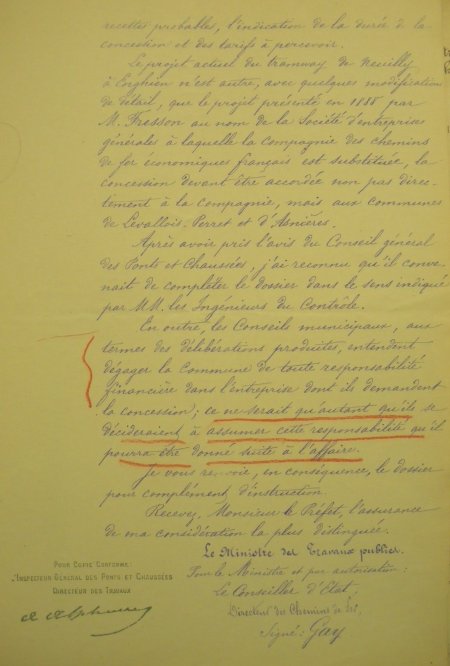 recettes probables, l'indication de la durée de la
concession et des tarifs à percevoir.
Le projet actuel du tramway de Neuilly
à Enghien n'est autre, avec quelques modifications
de détail, que le projet présenté en 1888 par
M. Fresson au nom de la Société d'entreprises
générales à laquelle la Compagnie des chemins
de fer économiques français est substituée, la
concession devant être accordée non pas direc-
tement à la Compagnie, mais aux communes
de Levallois-Perret et d'Asnières.
Après avoir pris l'avis du Conseil général
des Ponts et Chaussées, j'ai reconnu qu'il conve-
nait de compléter le dossier dans le sens indiqué
par MM. les Ingénieurs du Contrôle.
En outre, les Conseils municipaux, aux
termes des délibérations produites, entendent
dégager la Commune de toute responsabilité
financière dans l'entreprise dont ils demandent
la concession; ce ne serait qu'autant qu'ils se
décideraient à assumer cette responsabilité qu'il
pourra être donné suite à l'affaire.
Je vous renvoie, en conséquence, le dossier
pour complément d'instruction.
Recevez, Monsieur le Préfet, l'assurance
de ma considération la plus distinguée.
Le Ministre des Travaux publics.
Pour le Ministre et par autorisation:
Le Conseiller d'Etat,
Directeur des Chemins de fer,
Signé: Gay
POUR COPIE CONFORME:
L'INSPECTEUR GÉNÉRAL DES PONTS ET CHAUSSÉES
DIRECTEUR DES TRAVAUX